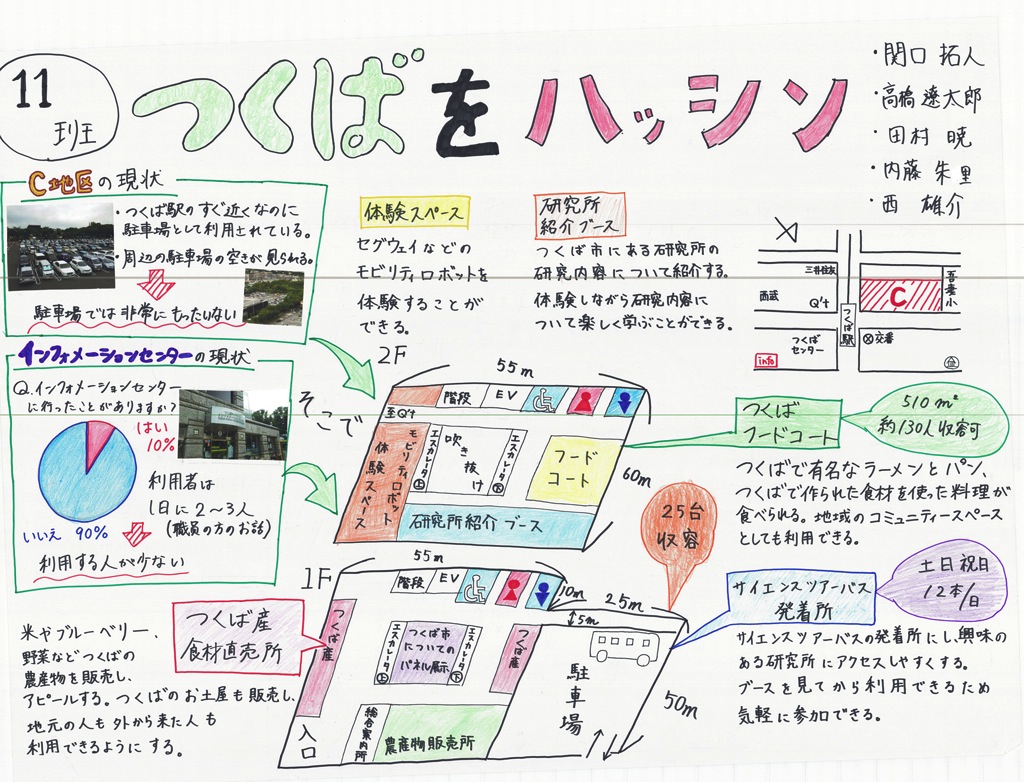 11
班
つくばをハッシン
・関口 拓人
・高橋 遼太郎
・田村 暁
・内藤 朱里
・西 雄介
C地区の現状
・つくば駅のすぐ近くなのに
駐車場として利用されている。
・周辺の駐車場の空きが見られる。
駐車場では非常にもったいない
インフォメーションセンターの現状
Q.インフォメーションセンター
に行ったことがありますか?
はい
10%
いいえ 90%
利用者は
1日に2~3人
(職員の方のお話)
利用する人が少ない
そこで
体験スペース
セグウェイなどの
モビリティロボットを
体験することが
できる。
研究所
紹介ブース
つくば市にある研究所の
研究内容について紹介する。
体験しながら研究内容に
ついて楽しく学ぶことができる。
三井住友
西武
Q't
C
吾妻小
つくば駅
つくば
センター
交番
info
2F
55m
60m
至Q't
階段
EV
モビリティロボット
体験スペース
エスカレータ上
吹き抜け
エスカレータ下
フード
コート
研究所紹介ブース
つくば
フードコート
510㎡
約130人収容可
つくばで有名なラーメンとパン、
つくばで作られた食材を使った料理が
食べられる。地域のコミュニティースペース
としても利用できる。
1F
55m
階段
EV
10m
25m
5m
50m
つくば産
エスカレータ上
つくば市
についての
パネル展示
エスカレータ下
つくば産
駐車場
入口
総合案内所
農産物販売所
25台
収容
つくば産
食材直売所
米やブルーベリー、
野菜などつくばの
農産物を販売し、
アピールする。つくばのお土産も販売し、
地元の人も外から来た人も
利用できるようにする。
サイエンスツアーバス
発着所
土日祝日
12本/日
サイエンスツアーバスの発着所にし、興味の
ある研究所にアクセスしやすくする。
ブースを見てから利用できるため
気軽に参加できる。